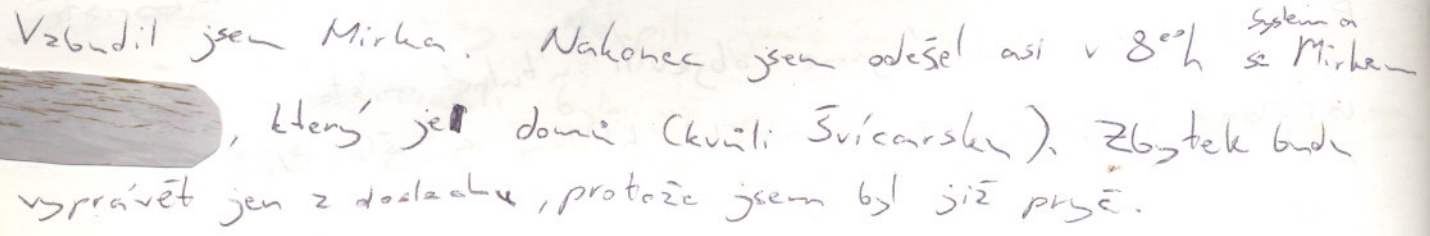 Vzbudil jsem Mirka. Nakonec jsem odešel asi v 8⁰⁰h se Mirkem
, který jel domů (kvůli Švícarsku). Zbytek budu
vyprávět jen z doslechu, protože jsem byl již pryč.